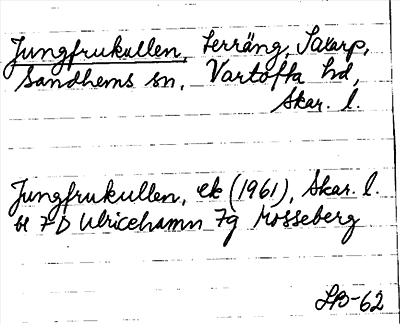 Jungfrukullen, terräng, Saxarp,
Sandhems sn, Vartofta hd,
Skar. l.
Jungfrukullen, ek (1961), Skar. l.
bl 7D Ulricehamn 7g Mösseberg
LB-62